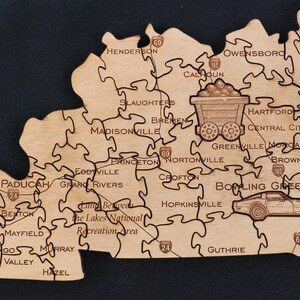 Henderson
Owensboro
Calhoun
Slaughters
Hartford
Bremen
Central Ci
Madisonville
Greenville
Morga
Princeton
Nortonville
Brow
Eddyville
Crofton
Paducah
Grand Rivers
Bowling Gree
Hopkinsville
Land Between
the Lakes National
Recreation Area
Benton
Mayfield
Murray
Guthrie
go
Valley
Hazel
24